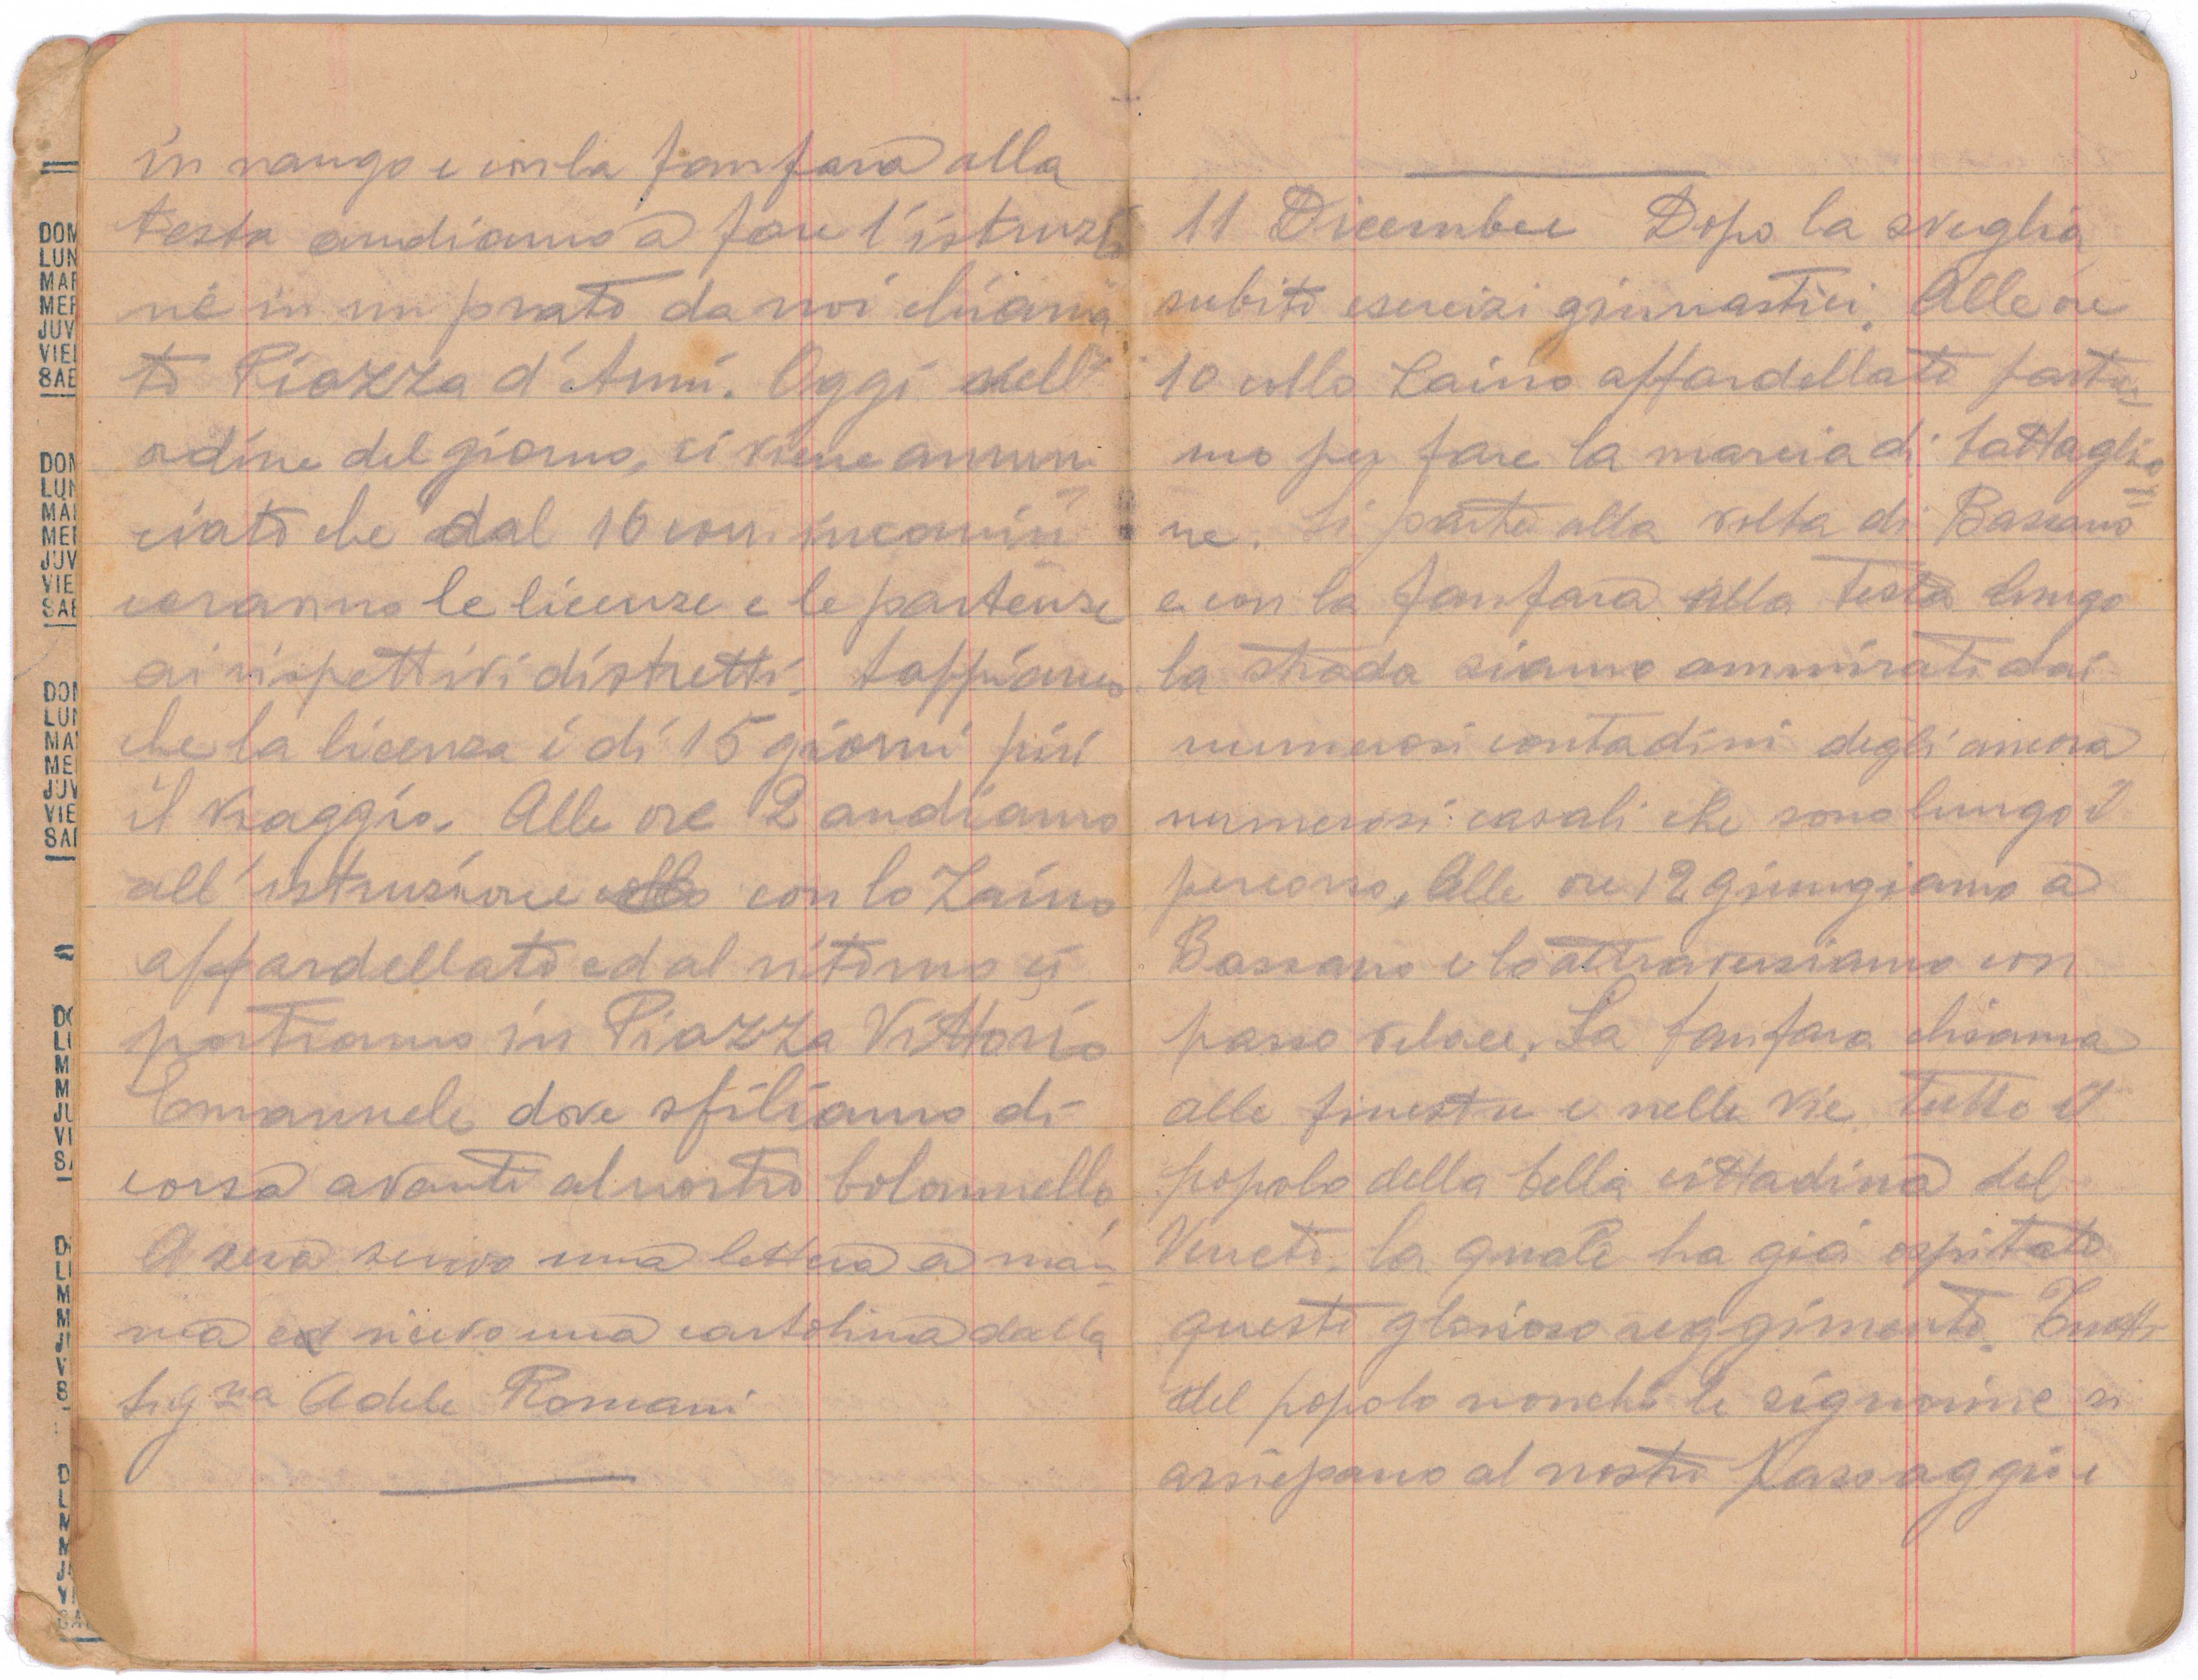 DOM
LUN
MAR
MER
JUV
VIE
SAB
DOM
LUN
MAR
MER
JUV
VIE
SAB
DOM
LUN
MAR
MER
JUV
VIE
SAB
in rango e con la fanfara alla
testa andiamo a fare l'istruzio
ne in un prato da noi chiama
to Piazza d'Armi. Oggi dell'
ordine del giorno, ci viene annun
ciato che dal 16 corr. incomin
ceranno le licenze e le partenze
ai rispettivi distretti. Sappiamo
che la licenza è di 15 giorni più
il viaggio. Alle ore 2 andiamo
all'istruzione con lo Zaino
affardellato ed al ritorno ci
portiamo in Piazza Vittorio
Emanuele dove sfiliamo di
corsa avanti al nostro Colonnello
A sera scrivo una lettera a mam-
ma ed ricevo una cartolina dalla
Sigra Adele Romani
11 Dicembre Dopo la sveglia
subito esercizi ginnastici. Alle ore
10 collo Zaino affardellato partia-
mo per fare la marcia di battaglio=
ne. Si parte alla volta di Bassano
e con la fanfara alla testa lungo
la strada siamo ammirati dai
numerosi contadini degli ancora
numerosi casali che sono lungo il
percorso, Alle ore 12 giungiamo a
Bassano e lo attraversiamo con
passo veloce. La fanfara chiama
alle finestre e nelle vie tutto il
popolo della bella cittadina del
Veneto. la quale ha già ospitato
questo glorioso reggimento. Tutti
del popolo nonchè le signorine si
assiepano al nostro passaggio e